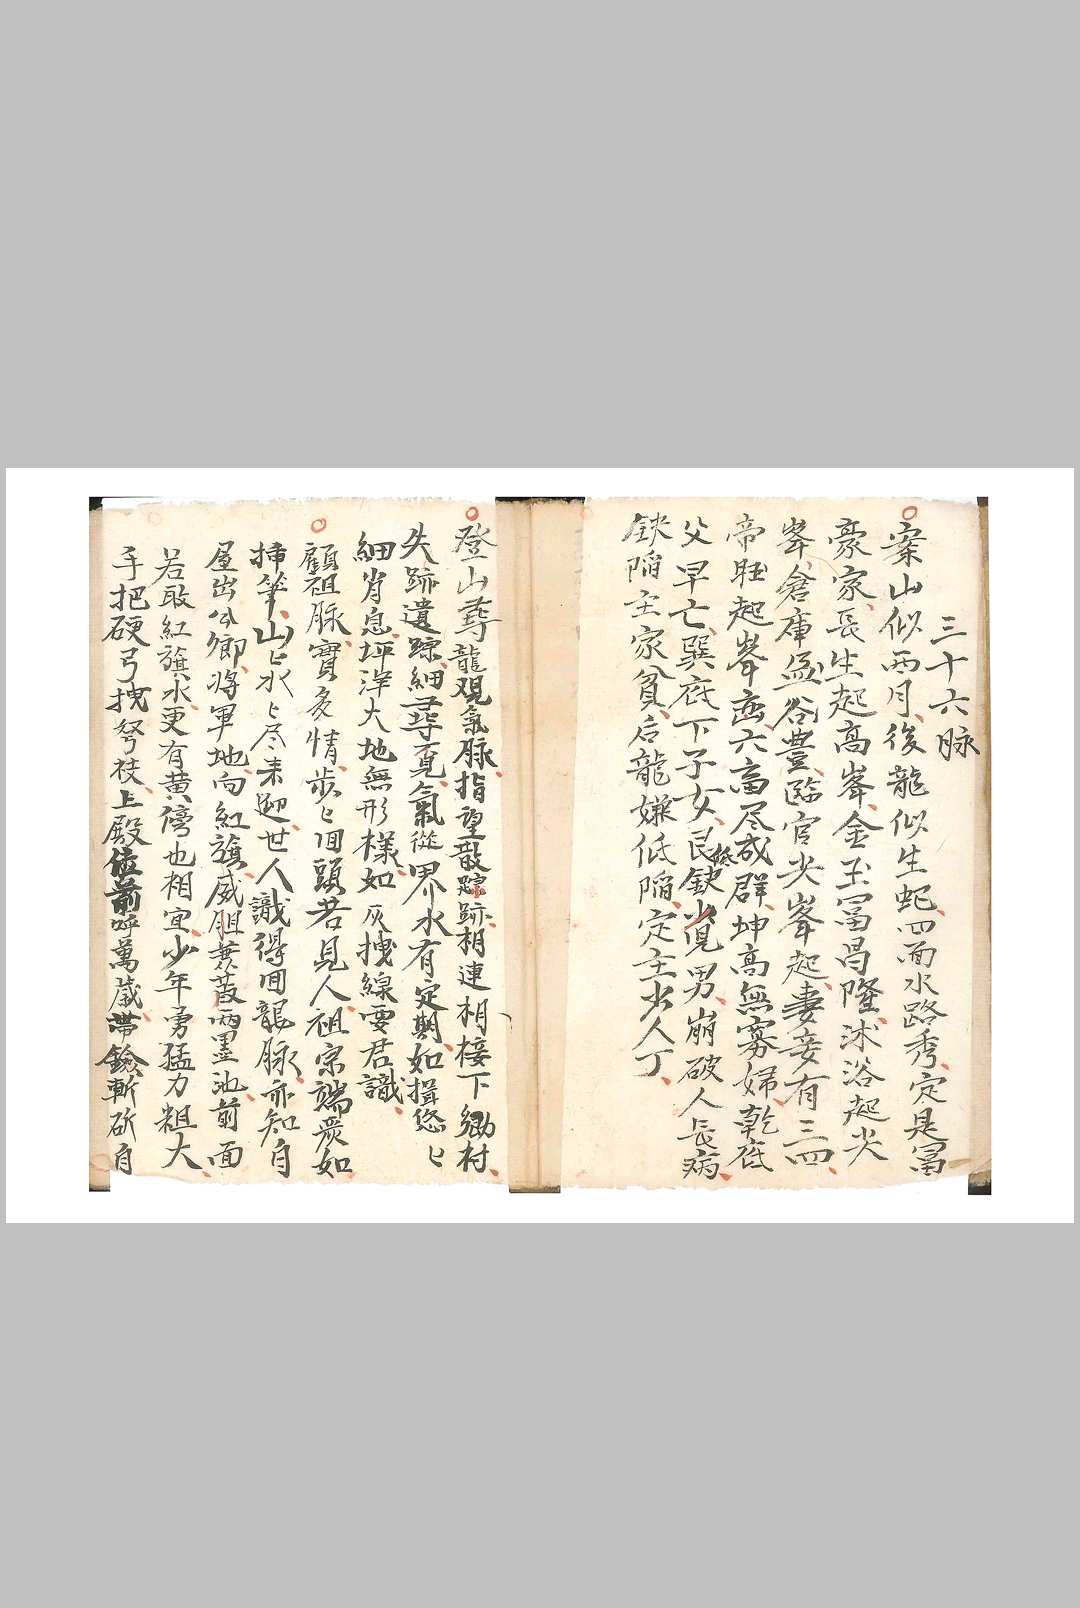 三十六脉
案山似西月後龍似生蛇四面水路秀定是冨
豪家長生起高峯金玉冨昌隆沭浴起尖
峯倉庫盈谷豊臨官尖峯起妻妾有三四
帝旺起峯巒六畜尽成群坤高無寡婦乾低
父早亡巽底下子女艮缺低少児男崩破人長病
缺陷主家貧后龍嫌低陷定主少人丁
登山尋龍观氣脉指望散踪跡相連相接下鄉村
失跡遺踪細尋覓氣從界水有定期如揖悠〻
細肖息坪洋大地無形樣如灰拽線要君識
顧祖脉寳多情步〻囬頭若見人祖宗端衆如
挿筆山〻水〻尽来迎世人識得囬龍脉亦知自
屋出公卿将軍地向紅旗威胆兩墨池前面
若敢紅旗水更有黄傍也相宜少年勇猛力粗大
手把硬弓拽弩枝上殿位前呼萬歲帶鐱斬砍自